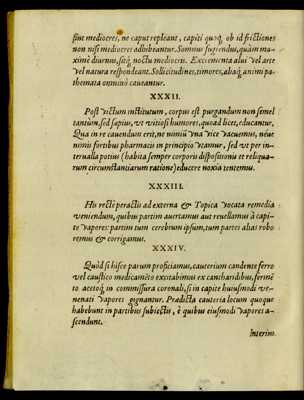 sint mediocres, ne caput repleant, capiti quoq; ob id frictiones
non nisi mediocres adhibeantur. Somnus fugiendus, quàm ma-
ximè diurnus, sitq; noctu mediocris. Excrementa alui vel arte
vel natura respondeant. Solicitudines, timores, aliaq; animi pa-
themata omnino caueantur.
XXXII.
Post victum institutum, corpus est purgandum non semel
tantùm, sed sæpius, vt vitiosi humores, quoad licet, educantur.
Qua in re cauendum erit, ne nimiũ vna vice vacuemus, néue
nimis fortibus pharmacis in principio vtamur, sed vt per in-
terualla potius (habita semper corporis dispositionis et reliqua-
rum circumstantiarum ratione) educere noxia tentemus.
XXXIII.
His rectè peractis ad externa & Topica vocata remedia
veniendum, quibus partim auertamus aut reuellamus à capi-
te vapores: partim tum cerebrum ipsum, tum partes alias robo
remus & corrigamus.
XXXIV.
Quòd si hisce parum proficiamus, cauterium candente ferro
vel caustico medicamẽto excitabimus ex cantharidibus, fermẽ
to acetoq; in commissura coronali, si in capite huiusmodi ve-
nenati vapores gignantur. Prædicta cauteria locum quoque
habebunt in partibus subiectis, è quibus eiusmodi vapores a-
scendunt.
Interim